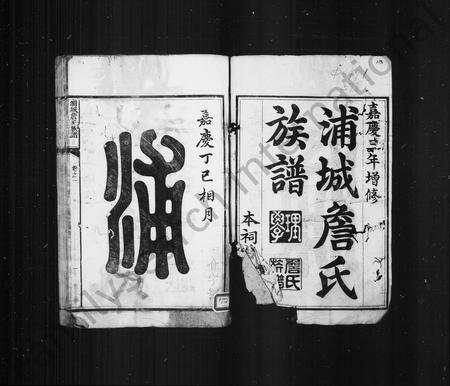 嘉慶二年增修
浦城詹氏
族譜
理學
詹氏族譜
本祠
嘉慶丁巳相月
浦
浦城詹氏族譜
卷之一
FamilySearch International